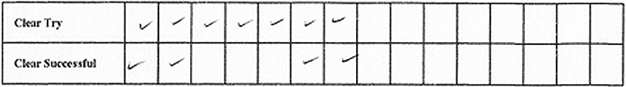 Clear Try ✓ ✓ ✓ ✓ ✓ ✓ ✓
Clear Successful ✓ ✓ ✓ ✓